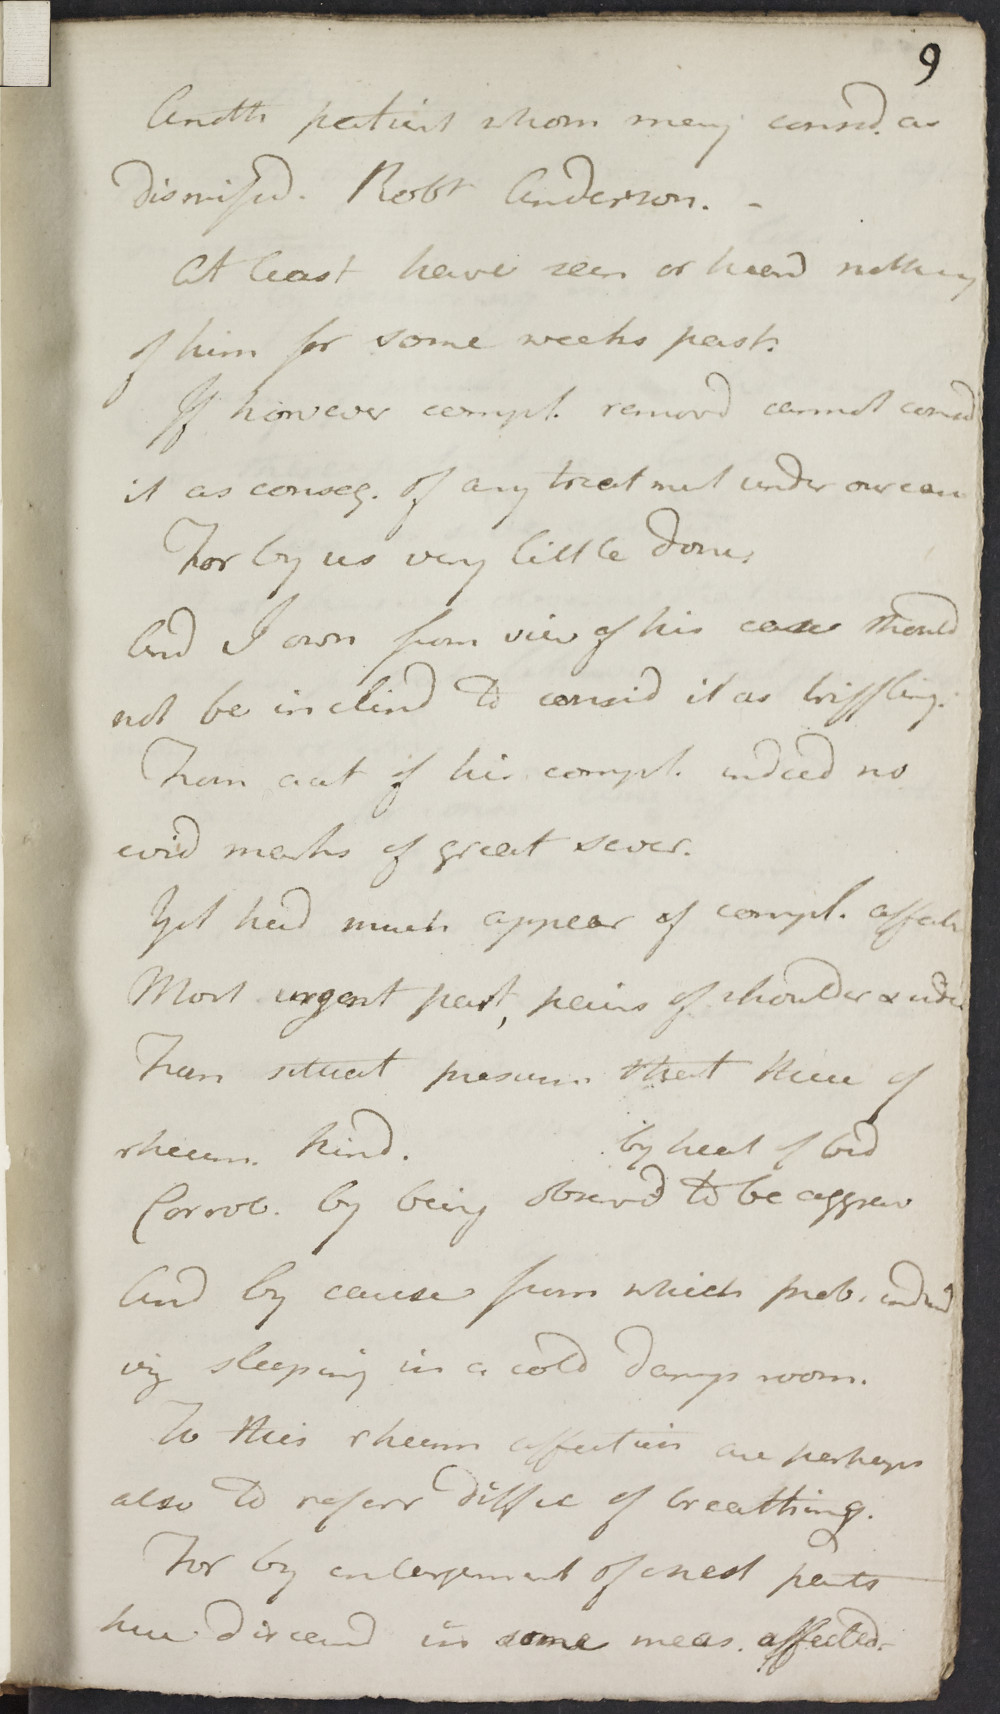 9
Anoth patient whom may consid. as
dismissed. Robt Anderson. -
At least have seen or heard nothing
of him for some weeks past.
If however compl. removd cannot consid
it as conseq. of any treatment under our care
For by us very little done.
And I own from view of his case should
not be inclind to consid it as triffling.
From acct of his compl. indeed no
evid marks of great sever.
Yet had much appear of compl. affect
Most urgent part, pains of shoulder &
From situat presum that these of
rheum. kind.
by heat of bed
Corrob. by being observd to be aggrav
And by cause from which prob. inducd
viz sleeping in a cold damp room.
To this rheum affection are perhaps
also to referr diffic of breathing.
For by enlargement of chest parts
here diseasd in some meas. affected.